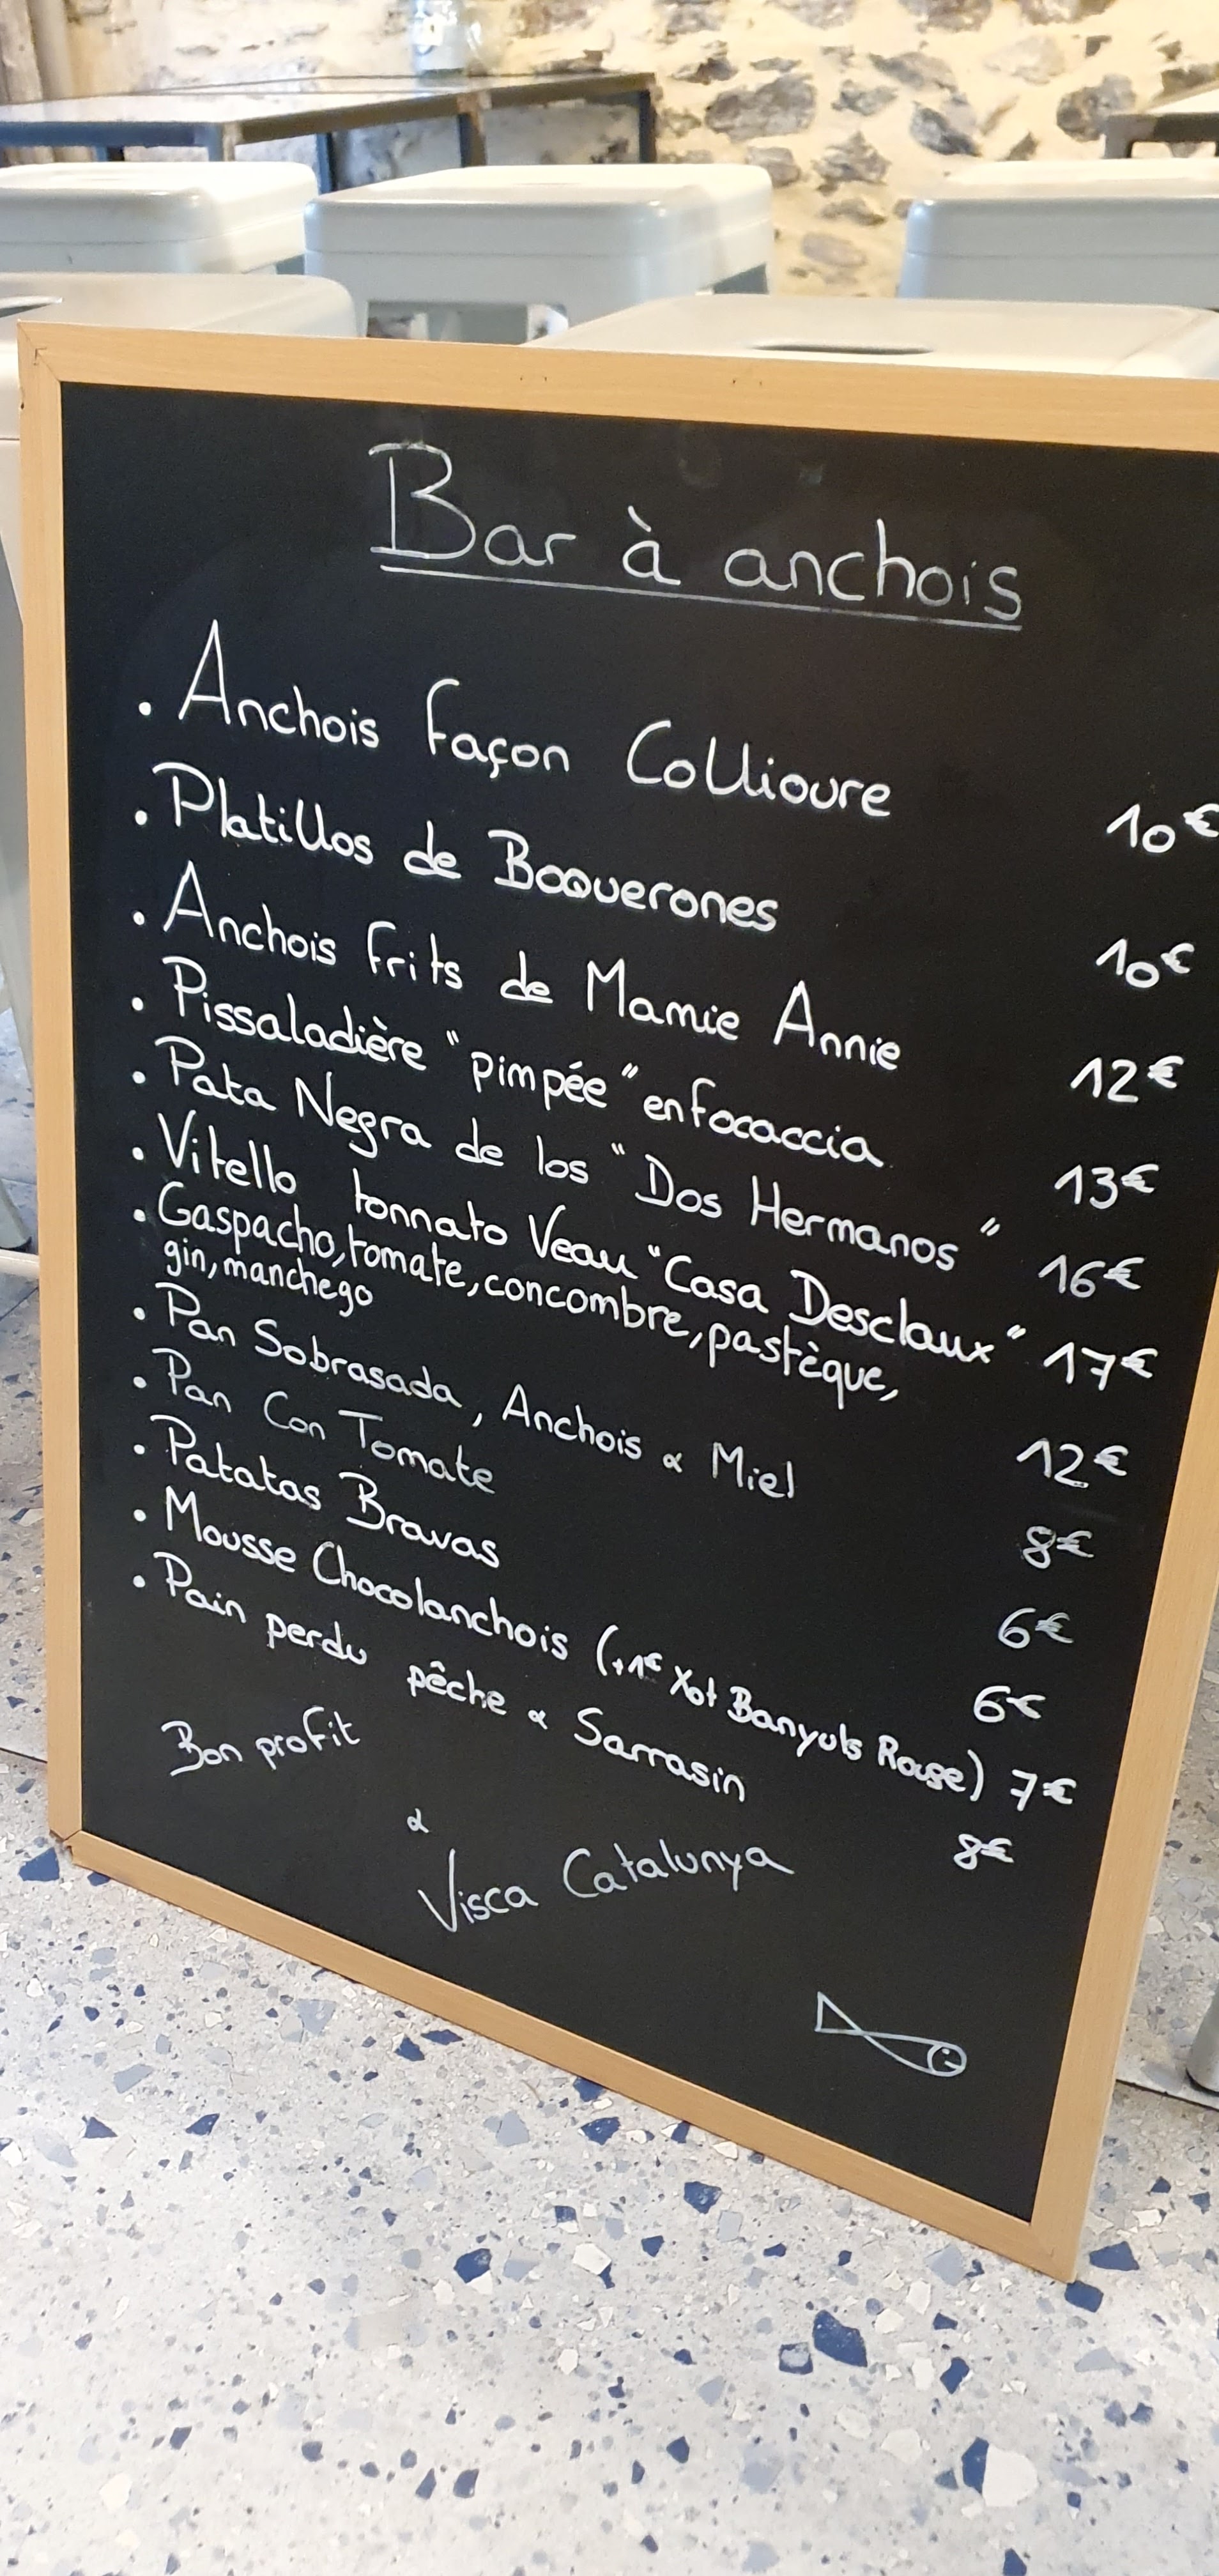 Bar à anchois
. Anchois façon Collioure 10€
. Platillos de Boquerones 10€
. Anchois frits de Mamie Annie 12€
. Pissaladière "pimpée" en focaccia 13€
. Pata Negra de los "Dos Hermanos" 16€
. Vitello tonnato Veau "Casa Desclaux" 17€
. Gaspacho, tomate, concombre, pastèque,
gin, manchego 12€
. Pan Sobrasada, Anchois & Miel 8€
. Pan Con Tomate 6€
. Patatas Bravas 6€
. Mousse Chocolanchois (+1€ Xot Banyuls Rouge) 7€
. Pain perdu pêche & Sarrasin 8€
Bon profit
&
Visca Catalunya